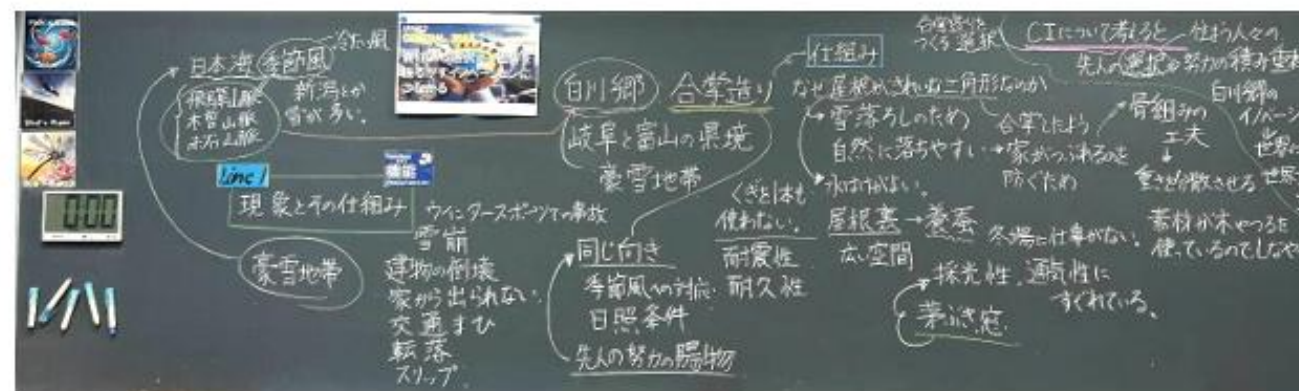 日本海 季節風
冷たい風
新潟とか
雪が多い。
飛騨山脈
木曽山脈
赤石山脈
Line 1
機能
現象とその仕組み
豪雪地帯
ウインタースポーツでの事故
雪崩
建物の倒壊
家から出られない
交通まひ
転落
スリップ
白川郷 合掌造り
岐阜と富山の県境
豪雪地帯
同じ向き
季節風への対応
日照条件
先人の努力の賜物
くぎを1本も
使わない。
耐震性
耐久性
仕組み
なぜ屋根がきれいな三角形なのか
雪落ろしのため
自然に落ちやすい→家がつぶれるのを
防ぐため
水はけがよい。
屋根裏→養蚕
広い空間
冬場に仕事がない。
採光性、通気性に
すぐれている。
茅ぶき窓
合掌したよう
骨組みの
工夫
重さを分散させる
素材が木やつるを
使っているのでしなや
つくる選択
CIについて考えると
住まう人々の
先人の選択や努力の積み重ね
白川郷の
イノベーシ
世界
0:00